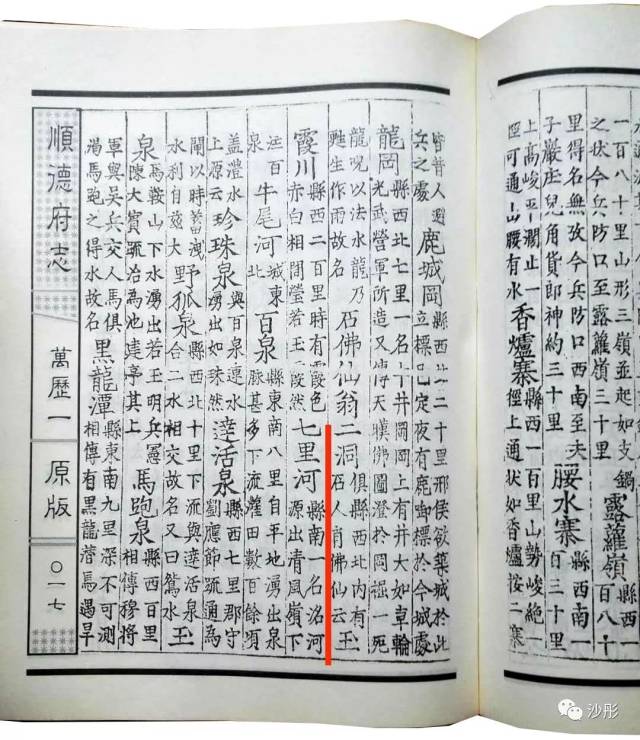 一百八十里山形三嶺並起如支鍋之狀今兵防口至露籮嶺三十里露籮嶺縣西一百八十
里得名無攷今兵防口西南至夫子巖庒兒角貨郎神約三十里腰水寨縣西南一百三十里
上高峻平濶止一徑可通山腰有水香爐寨縣西一百里山勢峻絶一徑上通狀如香爐按二寨
皆昔人避兵之處鹿城岡縣西北二十里邢侯欲築城於此立標已定夜有鹿啣標於今城處
龍岡縣西北七里一名十井岡岡上有井大如車輪光武營軍所造又傳天暵佛圖澄於岡掘一死
龍呪以法水龍乃甦生作雨故名石佛仙翁二洞俱縣西北内有石人肖佛仙云玉
霞川縣西二百里時有霞色赤白相間瑩若玉霞然七里河縣南一名洺河源出清風嶺下
注百泉牛尾河城東北百泉縣東南八里自平地湧出泉脈甚多下流灌田數百餘頃
盖澧水上原云珍珠泉與百泉連水湧出如珠然達活泉縣西七里郡守劉應節䟽通為
閘以時蓄洩水利自遠大野狐泉縣西北十里下流與達活泉合二水相交故名又曰鴛水玉
泉為鞍山下水湧出若玉明兵憲陳大賓䟽治為池建亭其上馬跑泉縣西百里相傳穆將
軍與吳兵交人馬俱渴馬跑之得水故名黑龍潭縣東南九里深不可測相傳有黑龍潛焉遇旱
順德府志
萬歷一
原版
〇一七
沙彤